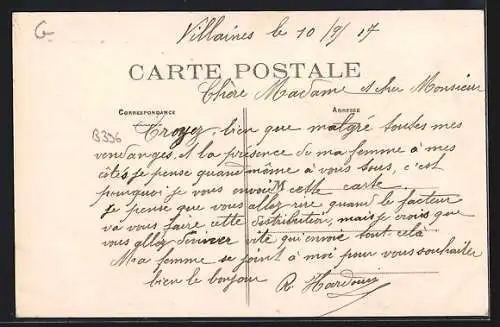 G
Villaines le 10/9/17
CARTE POSTALE
Chère Madame et cher Monsieur
CORRESPONDANCE
ADRESSE
B336
Croyez bien que malgré toutes mes
vendanges et la présence de ma femme à mes
côtés je pense quand même à vous tous, c'est
pourquoi je vous envoi cette carte.
je pense que vous allez rire quand le facteur
va vous faire cette distribution, mais je crois que
vous allez deviner vite qui envoie tout celà
Ma femme se joint à moi pour vous souhaiter
bien le bonjour
R. Hardouin